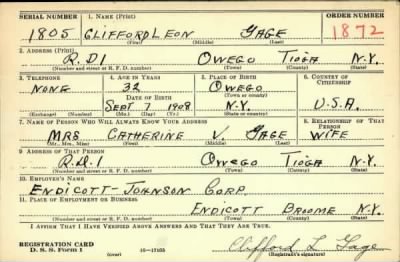 SERIAL NUMBER 1. NAME (Print) ORDER NUMBER
1805 CLIFFORD LEON GAGE 1872
(First) (Middle) (Last)
2. ADDRESS (Print)
R.D.1 OWEGO TIOGA N.Y.
(Number and street or R. F. D. number) (Town) (County) (State)
3. TELEPHONE 4. AGE IN YEARS 5. PLACE OF BIRTH 6. COUNTRY OF CITIZENSHIP
NONE 32 OWEGO
DATE OF BIRTH (Town or county)
SEPT 7 1908 N.Y. U.S.A.
(Exchange) (Number) (Mo.) (Day) (Yr.) (State or country)
7. NAME OF PERSON WHO WILL ALWAYS KNOW YOUR ADDRESS 8. RELATIONSHIP OF THAT PERSON
MRS CATHERINE V. GAGE WIFE
(Mr., Mrs., Miss) (First) (Middle) (Last)
9. ADDRESS OF THAT PERSON
R.D.1 OWEGO TIOGA N.Y.
(Number and street or R. F. D. number) (Town) (County) (State)
10. EMPLOYER'S NAME
ENDICOTT-JOHNSON CORP.
11. PLACE OF EMPLOYMENT OR BUSINESS
ENDICOTT BROOME N.Y.
(Number and street or R. F. D. number) (Town) (County) (State)
I AFFIRM THAT I HAVE VERIFIED ABOVE ANSWERS AND THAT THEY ARE TRUE.
REGISTRATION CARD
D. S. S. Form 1 (over) 16—17105 Clifford L Gage
(Registrant's signature)